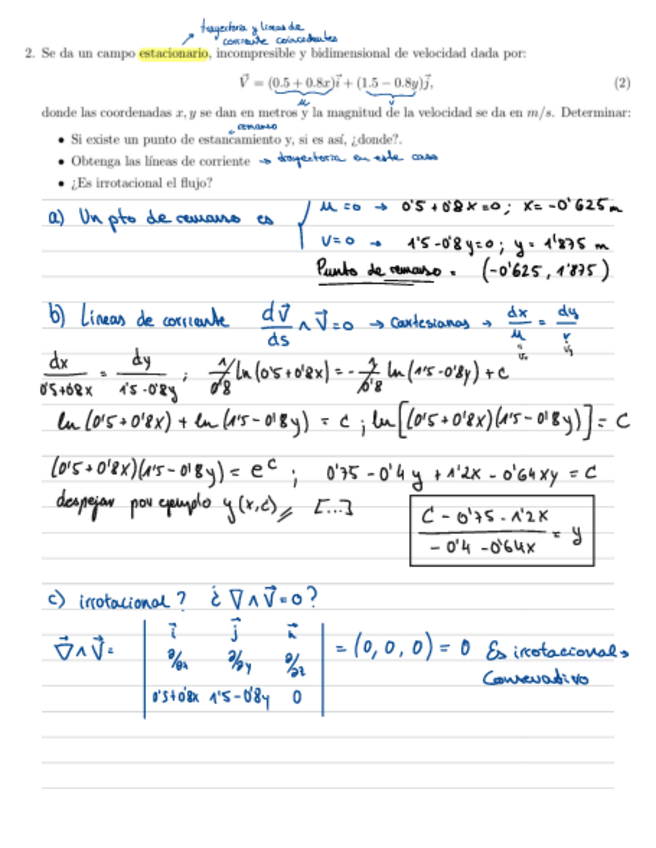 trayectoria y líneas de
corriente coincidentes
2. Se da un campo estacionario, incompresible y bidimensional de velocidad dada por:
V⃗ = (0.5 + 0.8x)i⃗ + (1.5 − 0.8y)j⃗, (2)
u v
donde las coordenadas x, y se dan en metros y la magnitud de la velocidad se da en m/s. Determinar:
remanso
• Si existe un punto de estancamiento y, si es así, ¿donde?.
• Obtenga las líneas de corriente → trayectoria en este caso
• ¿Es irrotacional el flujo?
a) Un pto de remanso es { u = 0 → 0'5 + 0'8x = 0 ; x = -0'625 m
v = 0 → 1'5 - 0'8y = 0 ; y = 1'875 m
Punto de remanso = (-0'625, 1'875)
b) Líneas de corriente dV⃗/ds ∧ V⃗ = 0 → Cartesianas → dx/u = dy/v
dx/(0'5+0'8x) = dy/(1'5-0'8y) ; 1/0'8 ln(0'5+0'8x) = -1/0'8 ln(1'5-0'8y) + C
ln(0'5+0'8x) + ln(1'5-0'8y) = C ; ln[(0'5+0'8x)(1'5-0'8y)] = C
(0'5+0'8x)(1'5-0'8y) = e^C ; 0'75 - 0'4y + 1'2x - 0'64xy = C
despejar por ejemplo y(x,c) [...] (C - 0'75 - 1'2x)/(-0'4 - 0'64x) = y
c) irrotacional? ¿∇∧V⃗=0?
∇⃗∧V⃗ = | i⃗ j⃗ k⃗ |
| ∂/∂x ∂/∂y ∂/∂z | = (0, 0, 0) = 0 Es irrotacional →
| 0'5+0'8x 1'5-0'8y 0 | Conservativo